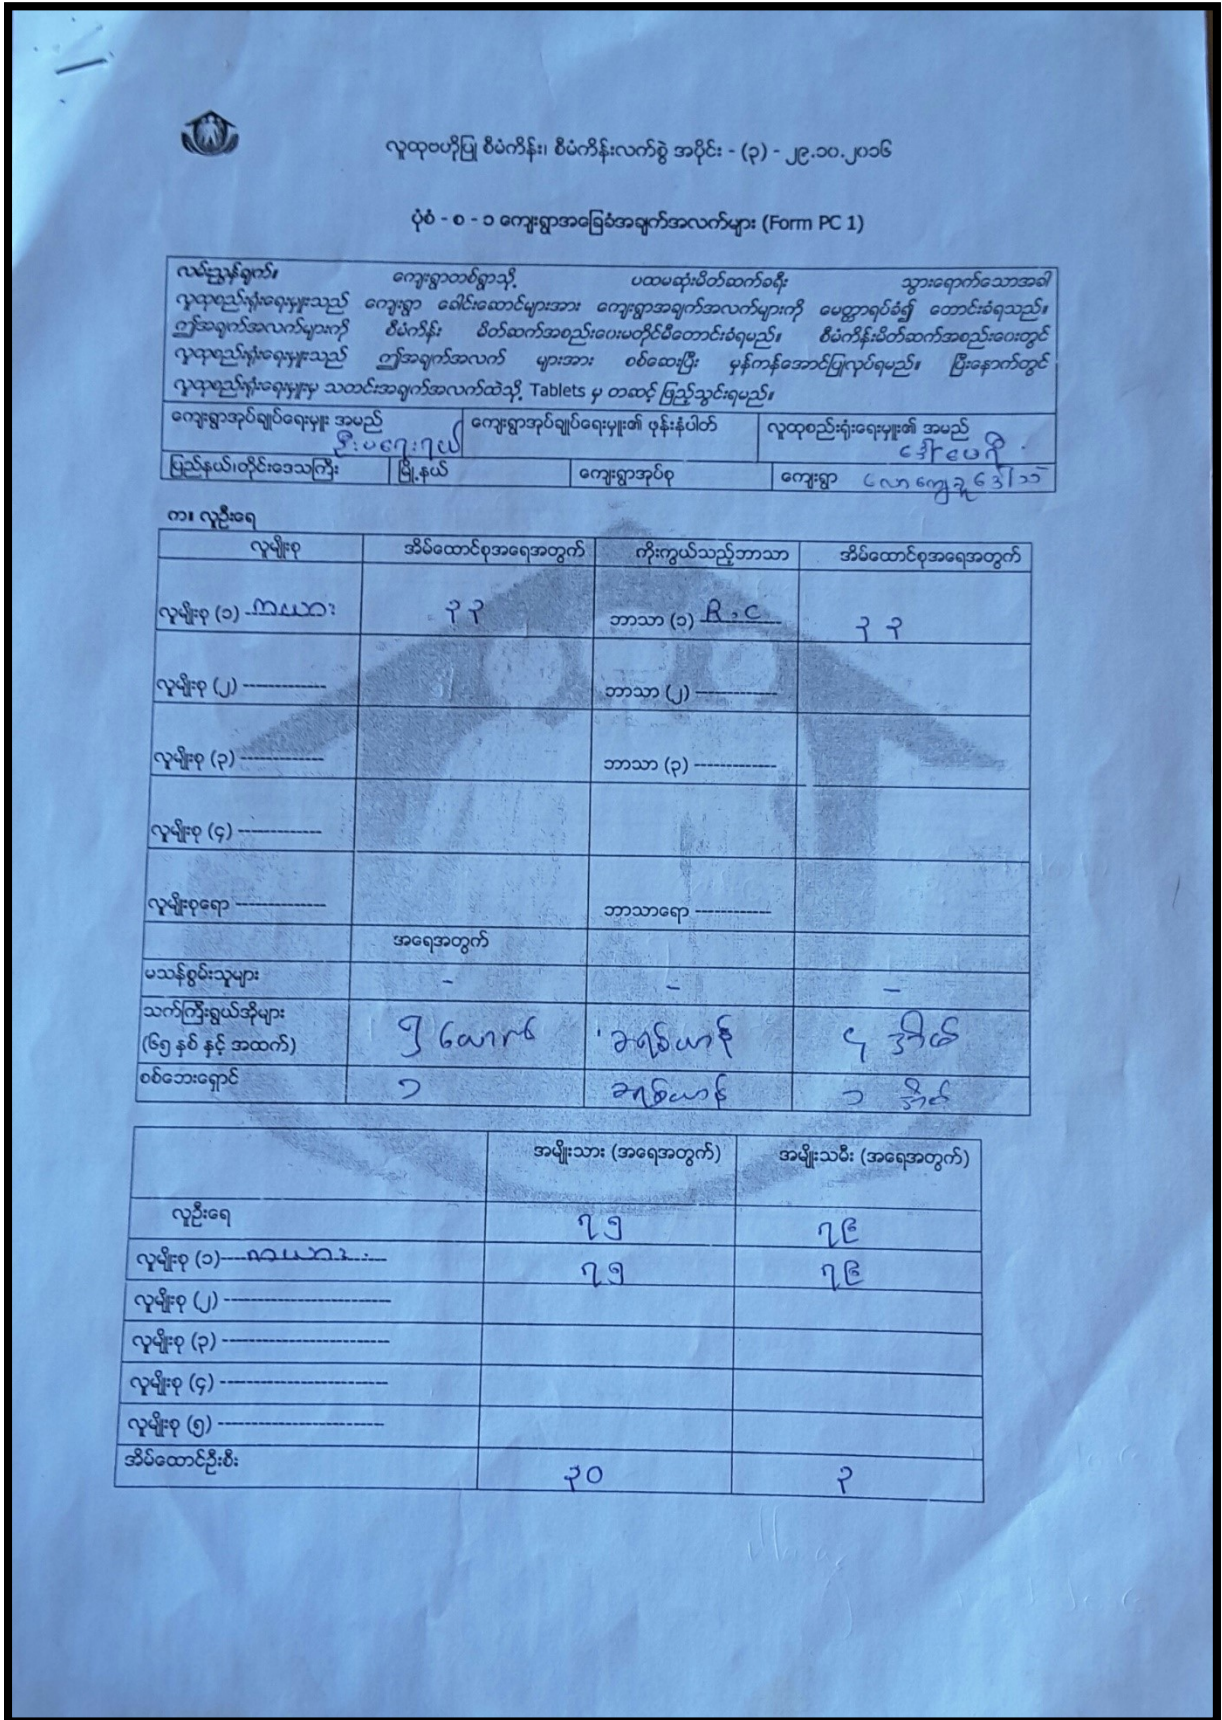 လူထုဗဟိုပြု စီမံကိန်း၊ စီမံကိန်းလက်စွဲ အပိုင်း - (၃) - ၂၉.၁၀.၂၀၁၆
ပုံစံ - စ - ၁ ကျေးရွာအခြေခံအချက်အလက်များ (Form PC 1)
လမ်းညွှန်ချက်။ ကျေးရွာတစ်ရွာသို့ ပထမဆုံးမိတ်ဆက်ခရီး သွားရောက်သောအခါ
လူထုစည်းရုံးရေးမှူးသည် ကျေးရွာ ခေါင်းဆောင်များအား ကျေးရွာအချက်အလက်များကို မေတ္တာရပ်ခံ၍ တောင်းခံရသည်။
ဤအချက်အလက်များကို စီမံကိန်း မိတ်ဆက်အစည်းဝေးမတိုင်မီတောင်းခံရမည်။ စီမံကိန်းမိတ်ဆက်အစည်းဝေးတွင်
လူထုစည်းရုံးရေးမှူးသည် ဤအချက်အလက် များအား စစ်ဆေးပြီး မှန်ကန်အောင်ပြုလုပ်ရမည်။ ပြီးနောက်တွင်
လူထုစည်းရုံးရေးမှူးမှ သတင်းအချက်အလက်ထဲသို့ Tablets မှ တဆင့် ဖြည့်သွင်းရမည်။
ကျေးရွာအုပ်ချုပ်ရေးမှူး အမည် ကျေးရွာအုပ်ချုပ်ရေးမှူး၏ ဖုန်းနံပါတ် လူထုစည်းရုံးရေးမှူး၏ အမည်
ဒေါ်မေရီ
ပြည်နယ်၊တိုင်းဒေသကြီး မြို့နယ် ကျေးရွာအုပ်စု ကျေးရွာ
က။ လူဦးရေ
လူမျိုးစု အိမ်ထောင်စုအရေအတွက် ကိုးကွယ်သည့်ဘာသာ အိမ်ထောင်စုအရေအတွက်
လူမျိုးစု (၁) ကယား ၃၃ ဘာသာ (၁) R.C ၃၃
လူမျိုးစု (၂) ------------- ဘာသာ (၂) -------------
လူမျိုးစု (၃) ------------- ဘာသာ (၃) -------------
လူမျိုးစု (၄) -------------
လူမျိုးစုရော -------------- ဘာသာရော ------------
အရေအတွက်
မသန်စွမ်းသူများ - - -
သက်ကြီးရွယ်အိုများ
(၆၅ နှစ် နှင့် အထက်) ၅ ယောက် ခရစ်ယာန် ၄ အိမ်
စစ်ဘေးရှောင် ၁ ခရစ်ယာန် ၁ အိမ်
အမျိုးသား (အရေအတွက်) အမျိုးသမီး (အရေအတွက်)
လူဦးရေ ၇၅ ၇၉
လူမျိုးစု (၁) ကယား ၇၅ ၇၉
လူမျိုးစု (၂) --------------------------
လူမျိုးစု (၃) --------------------------
လူမျိုးစု (၄) --------------------------
လူမျိုးစု (၅) --------------------------
အိမ်ထောင်ဦးစီး ၃၀ ၃